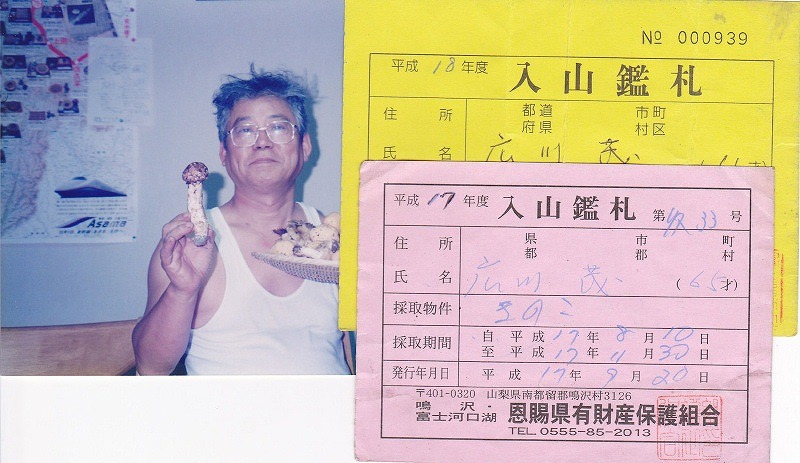 Asama
№ 000939
平成 18 年度 入山鑑札
住所 都道府県 市町村区
氏名 広川 茂
平成 17 年度 入山鑑札 第 33 号
住所 県都 市郡 町村
氏名 広川 茂 (65才)
採取物件 きのこ
採取期間 自 平成 17年 8月 10日
至 平成 17年 11月 30日
発行年月日 平成 17年 9月 20日
〒401-0320 山梨県南都留郡鳴沢村3126
鳴沢・富士河口湖 恩賜県有財産保護組合
TEL.0555-85-2013